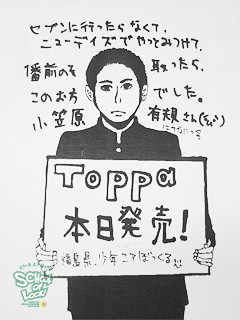 セブンに行ったらなくて、
ニューデイズでやっとみつけて、
1番前のを取ったら、
このお方でした。
小笠原 有規さん
にてないっす
Toppa
本日発売!
福島県、少年こてぽっくる
SCHOOL OF LOCK!